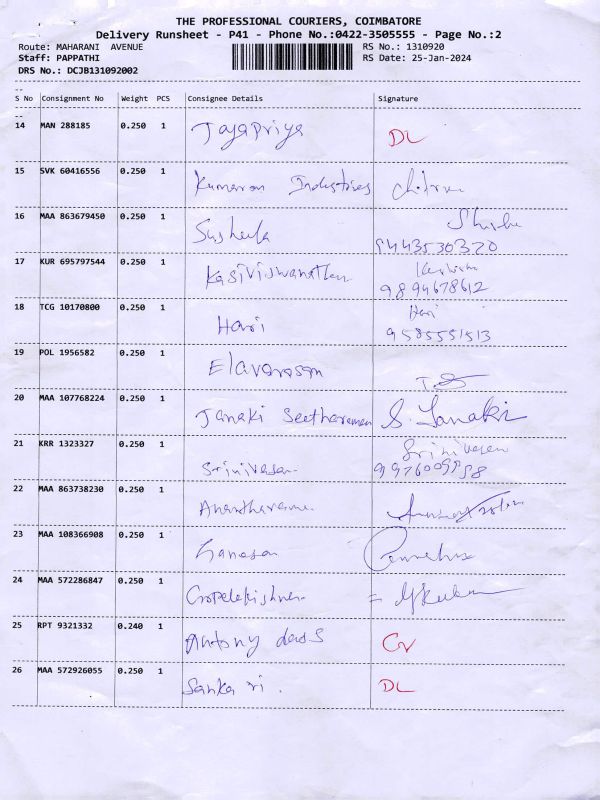 THE PROFESSIONAL COURIERS, COIMBATORE
Delivery Runsheet - P41 - Phone No.:0422-3505555 - Page No.:2
Route: MAHARANI AVENUE RS No.: 1310920
Staff: PAPPATHI RS Date: 25-Jan-2024
DRS No.: DCJB131092002
--
S No Consignment No Weight PCS Consignee Details Signature
--
14 MAN 288185 0.250 1 Jayapriya DL
15 SVK 60416556 0.250 1 Kumaran Industries
16 MAA 863679450 0.250 1 Susheela
9443530320
17 KUR 695797544 0.250 1 Kasiviswanathan
9894678612
18 TCG 10170800 0.250 1 Hari Hari
9585551513
19 POL 1956582 0.250 1 Elavarasan
20 MAA 107768224 0.250 1 Janaki Seetharaman S. Janaki
21 KRR 1323327 0.250 1 Srinivasan Srinivasan
22 MAA 863738230 0.250 1
23 MAA 108366908 0.250 1
24 MAA 572286847 0.250 1
25 RPT 9321332 0.240 1 Antony dass
26 MAA 572926055 0.250 1 Sankari. DL